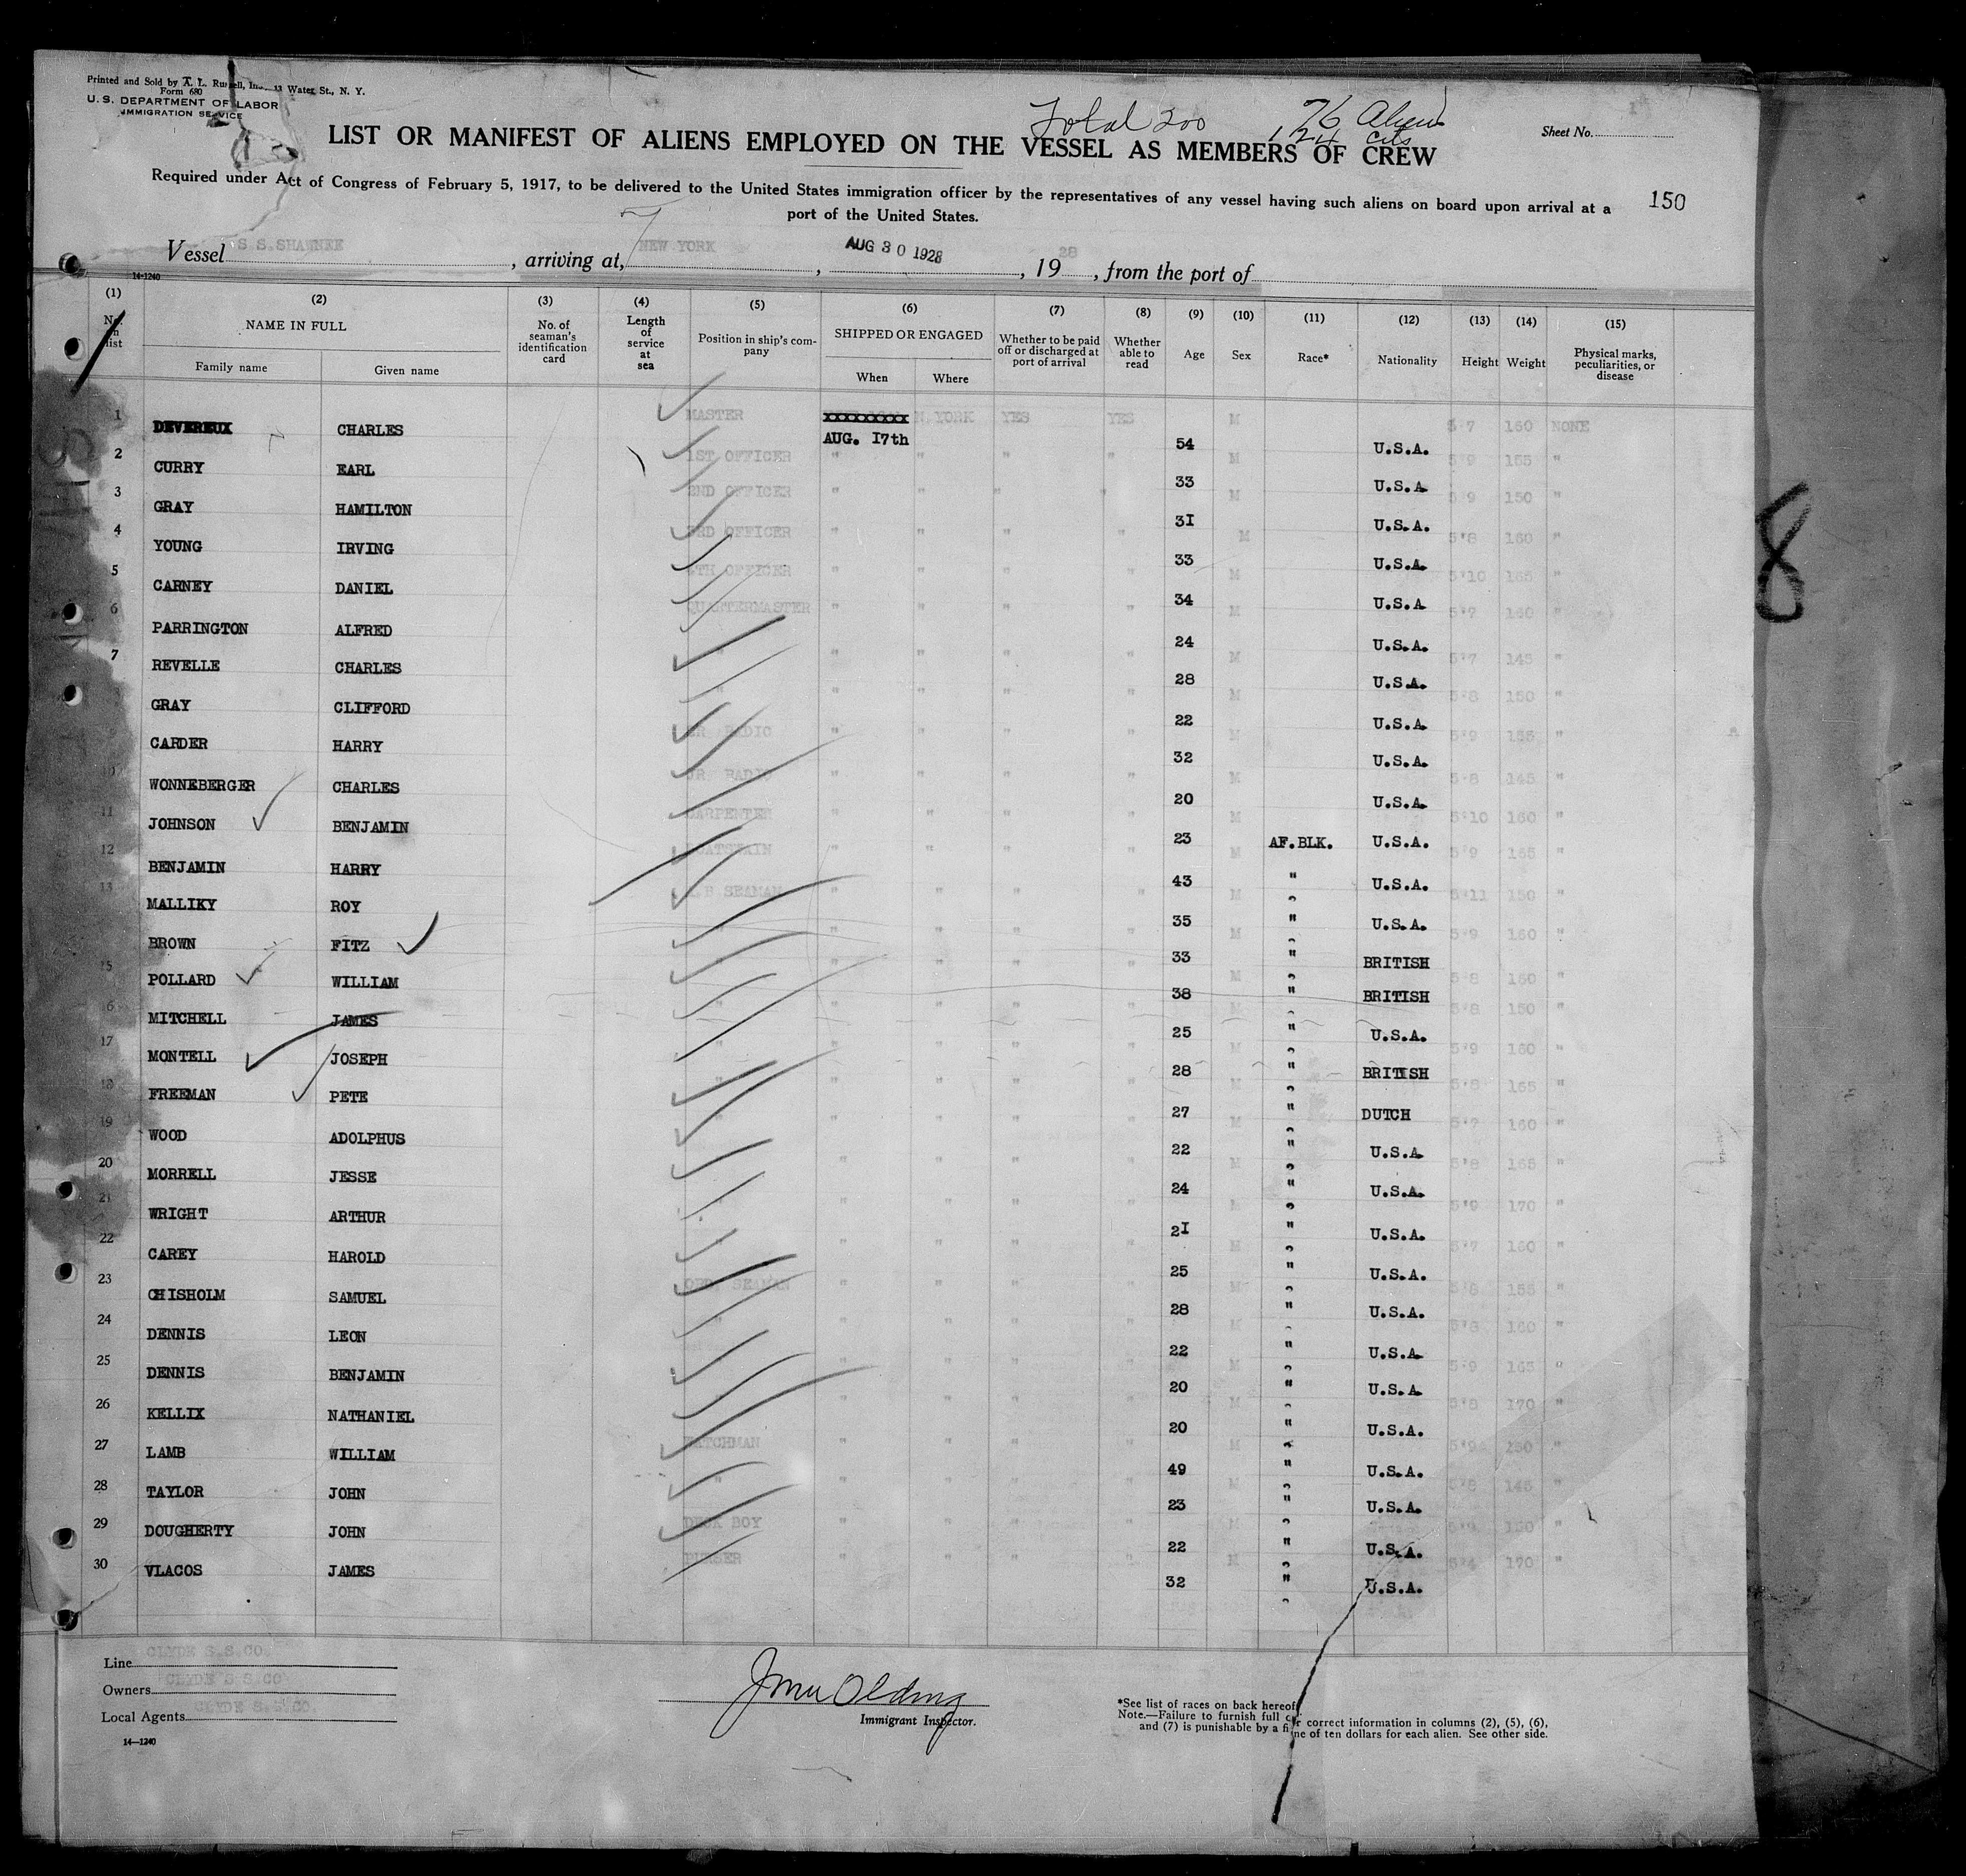 Printed and Sold by A. L. Russell, Inc. Water St., N. Y.
Form 680
U. S. DEPARTMENT OF LABOR
IMMIGRATION SERVICE
Total 200 76 Aliens
124 cits
Sheet No.
LIST OR MANIFEST OF ALIENS EMPLOYED ON THE VESSEL AS MEMBERS OF CREW
Required under Act of Congress of February 5, 1917, to be delivered to the United States immigration officer by the representatives of any vessel having such aliens on board upon arrival at a
port of the United States.
150
Vessel S S.SHAWNEE, arriving at, NEW YORK, AUG 30 1928, 19 28, from the port of
14-1240
(1) (2) (3) (4) (5) (6) (7) (8) (9) (10) (11) (12) (13) (14) (15)
No. on list NAME IN FULL Family name Given name No. of seaman's identification card Length of service at sea Position in ship's company SHIPPED OR ENGAGED When Where Whether to be paid off or discharged at port of arrival Whether able to read Age Sex Race* Nationality Height Weight Physical marks, peculiarities, or disease
1 DEVEREUX CHARLES MASTER XXXXXXXXX AUG. 17th N.YORK YES YES 54 M U.S.A. 5 7 160 NONE
2 CURRY EARL 1ST OFFICER " " " " 33 M U.S.A 5 9 165 "
3 GRAY HAMILTON 2ND OFFICER " " " " 31 M U.S.A. 5 9 150 "
4 YOUNG IRVING 3RD OFFICER " " " " 33 M U.S.A. 5'8 160 "
5 CARNEY DANIEL 4TH OFFICER " " " " 34 M U.S.A 5'10 165 "
6 PARRINGTON ALFRED QUARTERMASTER " " " " 24 M U.S.A. 5'7 160 "
7 REVELLE CHARLES " " " " " 28 M U.S.A. 5'7 145 "
GRAY CLIFFORD " " " " " 22 M U.S.A. 5'8 150 "
CARDER HARRY SR RADIO " " " " 32 M U.S.A. 5'9 155 "
10 WONNEBERGER CHARLES JR. RADIO " " " " 20 M U.S.A. 5 8 145 "
11 JOHNSON BENJAMIN CARPENTER " " " " 23 M AF.BLK. U.S.A. 5'10 160 "
12 BENJAMIN HARRY BOATSWAIN " " " " 43 M " U.S.A. 5'9 165 "
13 MALLIKY ROY A.B SEAMAN " " " " 35 M " U.S.A. 5'11 150 "
BROWN FITZ " " " " 33 M " BRITISH 5'9 160 "
15 POLLARD WILLIAM " " " " 38 M " BRITISH 5 8 160 "
16 MITCHELL JAMES " " " " " 25 M " U.S.A. 5'8 150 "
17 MONTELL JOSEPH " " " " " 28 M " BRITISH 5'9 160 "
18 FREEMAN PETE " " " " " 27 M " DUTCH 5'8 165 "
19 WOOD ADOLPHUS " " " " 22 M " U.S.A. 5'7 160 "
20 MORRELL JESSE " " " " 24 M " U.S.A. 5'8 165 "
21 WRIGHT ARTHUR " " " " 21 M " U.S.A. 5'9 170 "
22 CAREY HAROLD " " " " " 25 M " U.S.A. 5'7 160 "
23 CHISHOLM SAMUEL ORD. SEAMAN " " " " 28 M " U.S.A. 5'8 155 "
24 DENNIS LEON " " " " " 22 M " U.S.A. 5'8 160 "
25 DENNIS BENJAMIN " " " " 20 M " U.S.A. 5'9 165 "
26 KELLIX NATHANIEL " " " " 20 M " U.S.A. 5'8 170 "
27 LAMB WILLIAM WATCHMAN " " " " 49 M " U.S.A. 5'9 "
28 TAYLOR JOHN " " " " " 23 M " U.S.A. 5'8 145 "
29 DOUGHERTY JOHN DECK BOY " " " " 22 M " U.S.A. 5'9 160 "
30 VLACOS JAMES PURSER " " " " 32 M " U.S.A. 5'4 170 "
Line CLYDE S.S.CO.
Owners CLYDE S S CO
Local Agents CLYDE S.S.CO
14—1240
Immigrant Inspector.
*See list of races on back hereof.
Note.—Failure to furnish full or correct information in columns (2), (5), (6),
and (7) is punishable by a fine of ten dollars for each alien. See other side.
8